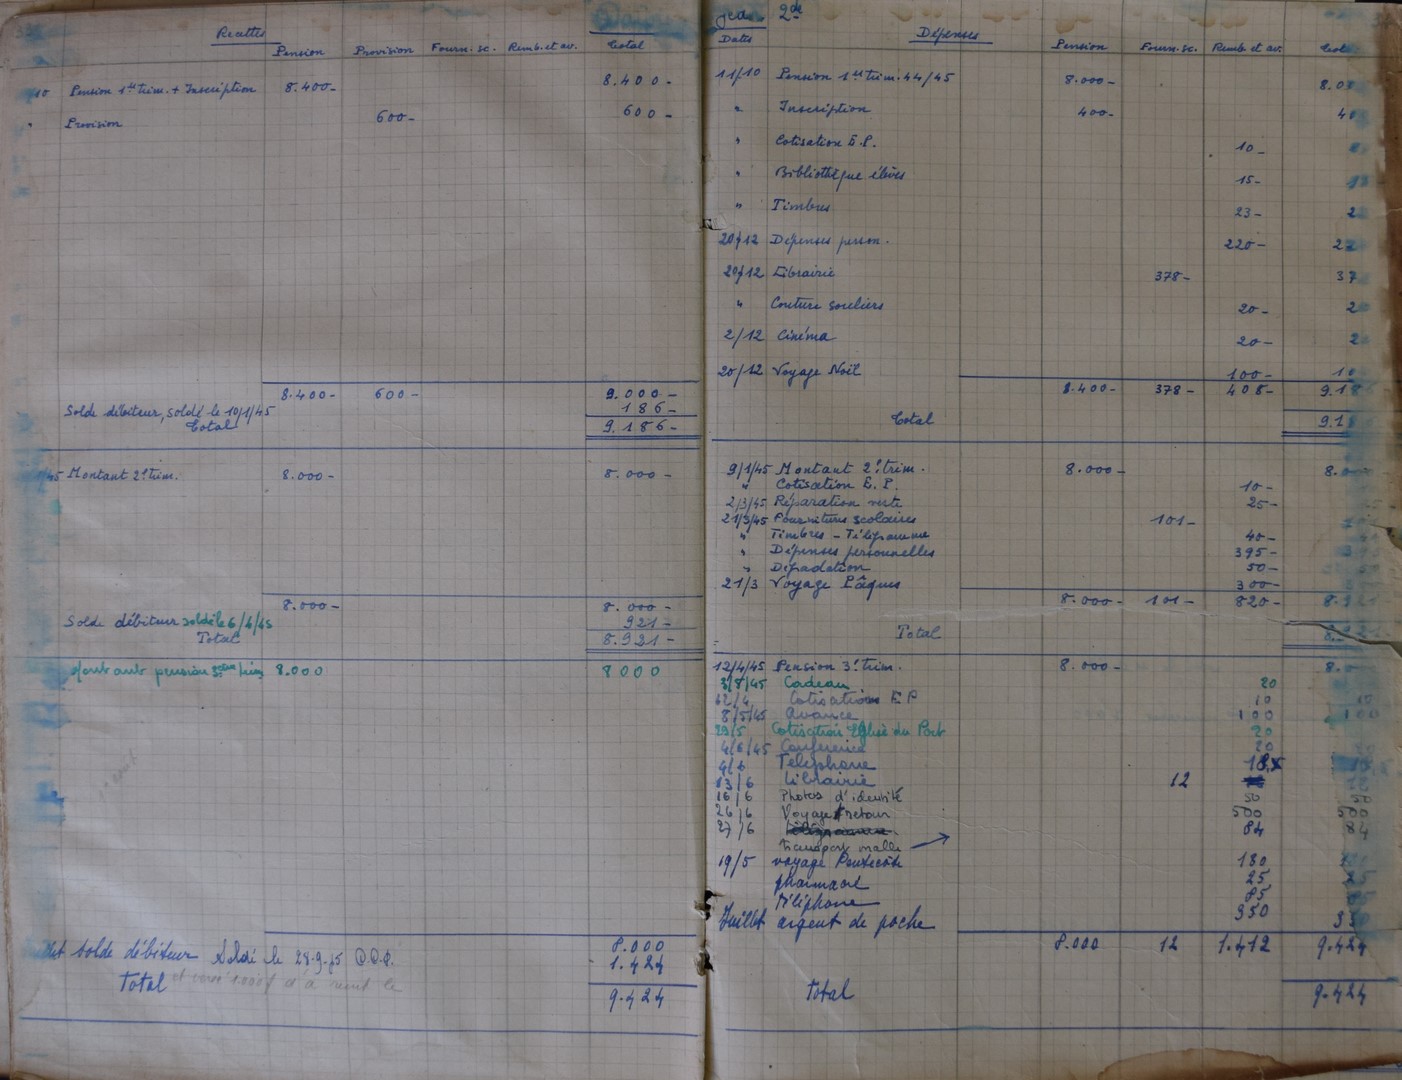 Recettes
Pension Provision Fourn. sc. Remb. et av. Total
10 Pension 1er trim. + Inscription 8.400- 8.400-
" Provision 600- 600-
8.400- 600- 9.000-
Solde débiteur, soldé le 10/1/45 186-
Total 9.186-
/45 Montant 2e trim. 8.000- 8.000-
8.000- 8.000-
Solde débiteur soldé le 6/4/45 921-
Total 8.921-
Montant pension 3ème trim 8.000 8000
8.000
solde débiteur Soldé le 28.9.45 1.424
Total
9.424
2de
Dates Dépenses Pension Fourn. sc. Remb et av. Tot
11/10 Pension 1er trim. 44/45 8.000- 8.0
" Inscription 400- 40
" Cotisation E.P. 10-
" Bibliothèque élèves 15-
" Timbres 23- 2
20/12 Dépenses person. 220- 22
20/12 Librairie 378- 37
" Couture souliers 20- 2
2/12 Cinéma 20- 2
20/12 Voyage Noël 100- 10
8.400- 378- 408- 9.18
Total 9.1
9/1/45 Montant 2e trim. 8.000- 8.
" Cotisation E.P. 10-
2/3/45 Réparation veste 25-
21/3/45 Fournitures scolaires 101-
" Timbres - Télégramme 40-
" Dépenses personnelles 395-
" Dégradation 50-
21/3 Voyage Pâques 300-
8.000- 101- 820- 8.921
Total 8.921
12/4/45 Pension 3e trim. 8.000- 8.
3/5/45 Cadeau 20
12/4 Cotisations E P 10 10
8/5/45 Avance 100 100
29/5 Cotisation Eglise du Port 20
4/6/45 Conférence 20
4/6 Téléphone
13/6 Librairie 12
16/6 Photos d'identité 50 50
26/6 Voyage retour 500 500
27/6 84 84
transport malle
19/5 voyage Pentecôte 180
pharmacie 25
téléphone 85
Juillet argent de poche 350 35
8.000 12 1.412 9.424
Total 9.424